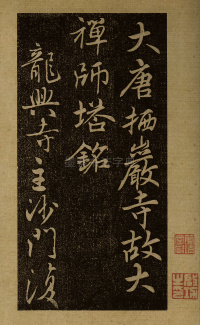 大唐栖巖寺故大
禪師塔銘
龍興寺主沙門復